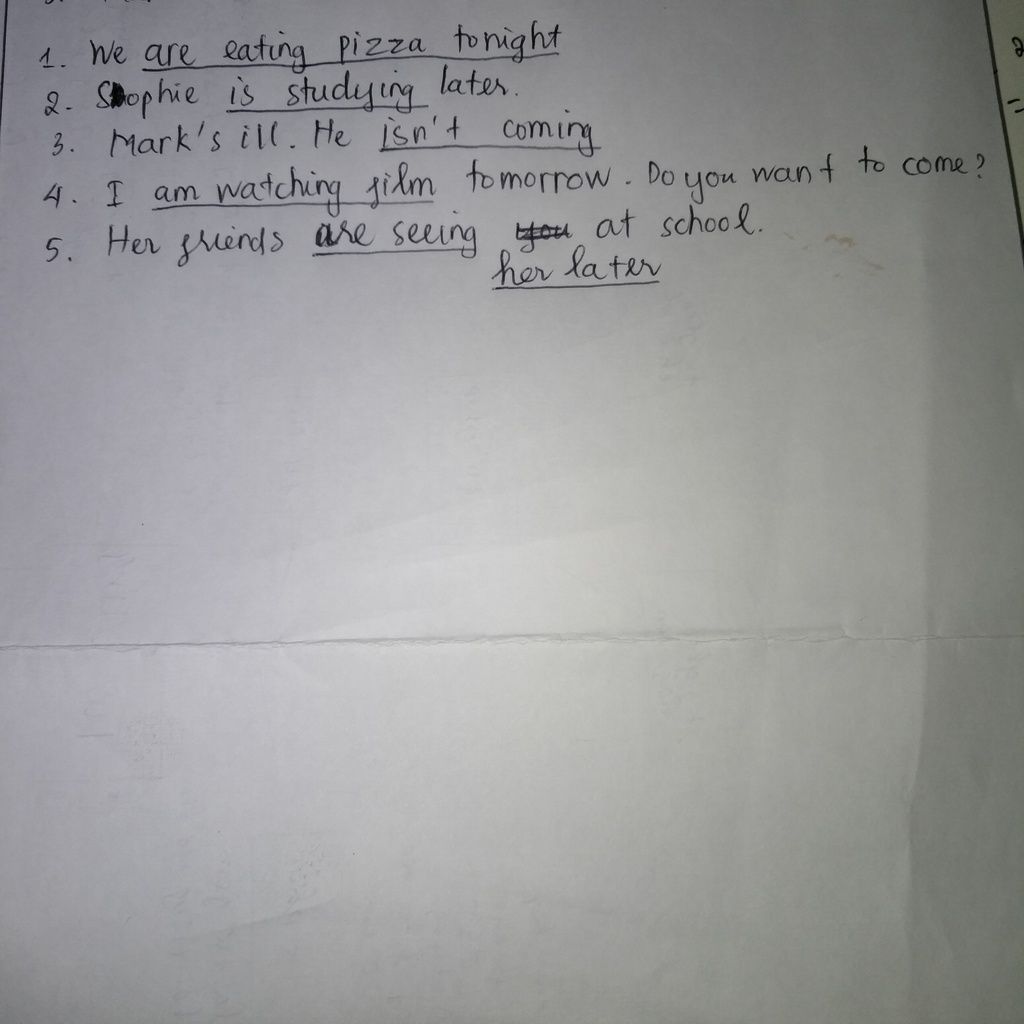 1. We are eating pizza tonight
2. Sophie is studying later.
3. Mark's ill. He isn't coming
4. I am watching film tomorrow. Do you want to come?
5. Her friends are seeing you at school.
her later